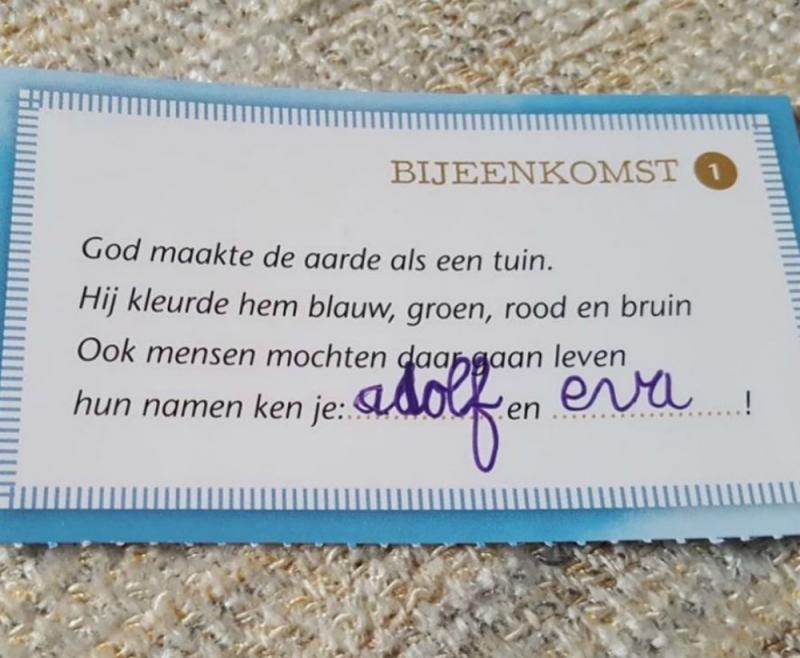 BIJEENKOMST 1
God maakte de aarde als een tuin.
Hij kleurde hem blauw, groen, rood en bruin
Ook mensen mochten daar gaan leven
hun namen ken je: adolf en eva !